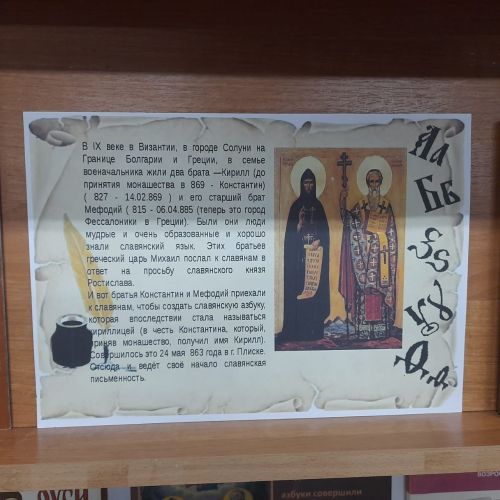 В IX веке в Византии, в городе Солуни на
Границе Болгарии и Греции, в семье
военачальника жили два брата —Кирилл (до
принятия монашества в 869 - Константин)
( 827 - 14.02.869 ) и его старший брат
Мефодий ( 815 - 06.04.885 (теперь это город
Фессалоники в Греции). Были они люди
мудрые и очень образованные и хорошо
знали славянский язык. Этих братьев
греческий царь Михаил послал к славянам в
ответ на просьбу славянского князя
Ростислава.
И вот братья Константин и Мефодий приехали
к славянам, чтобы создать славянскую азбуку,
которая впоследствии стала называться
кириллицей (в честь Константина, который,
приняв монашество, получил имя Кирилл).
Совершилось это 24 мая 863 года в г. Плиске.
Отсюда и ведёт своё начало славянская
письменность.
Аа
Бв
азбуки совершили